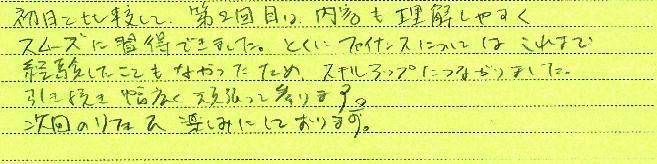 初日と比較して、第2回目は、内容も理解しやすく
スムーズに習得できました。とくにファイナンスについては これまで
経験したこともなかったため、スキルアップにつながりました。
引き続き 幅広く 頑張って参ります。
次回の 楽しみにしております。